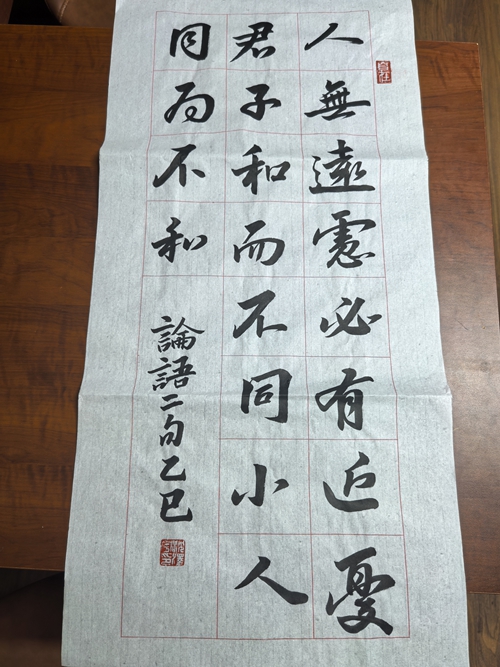 人無遠慮必有近憂
君子和而不同小人
同而不和
論語二句乙巳